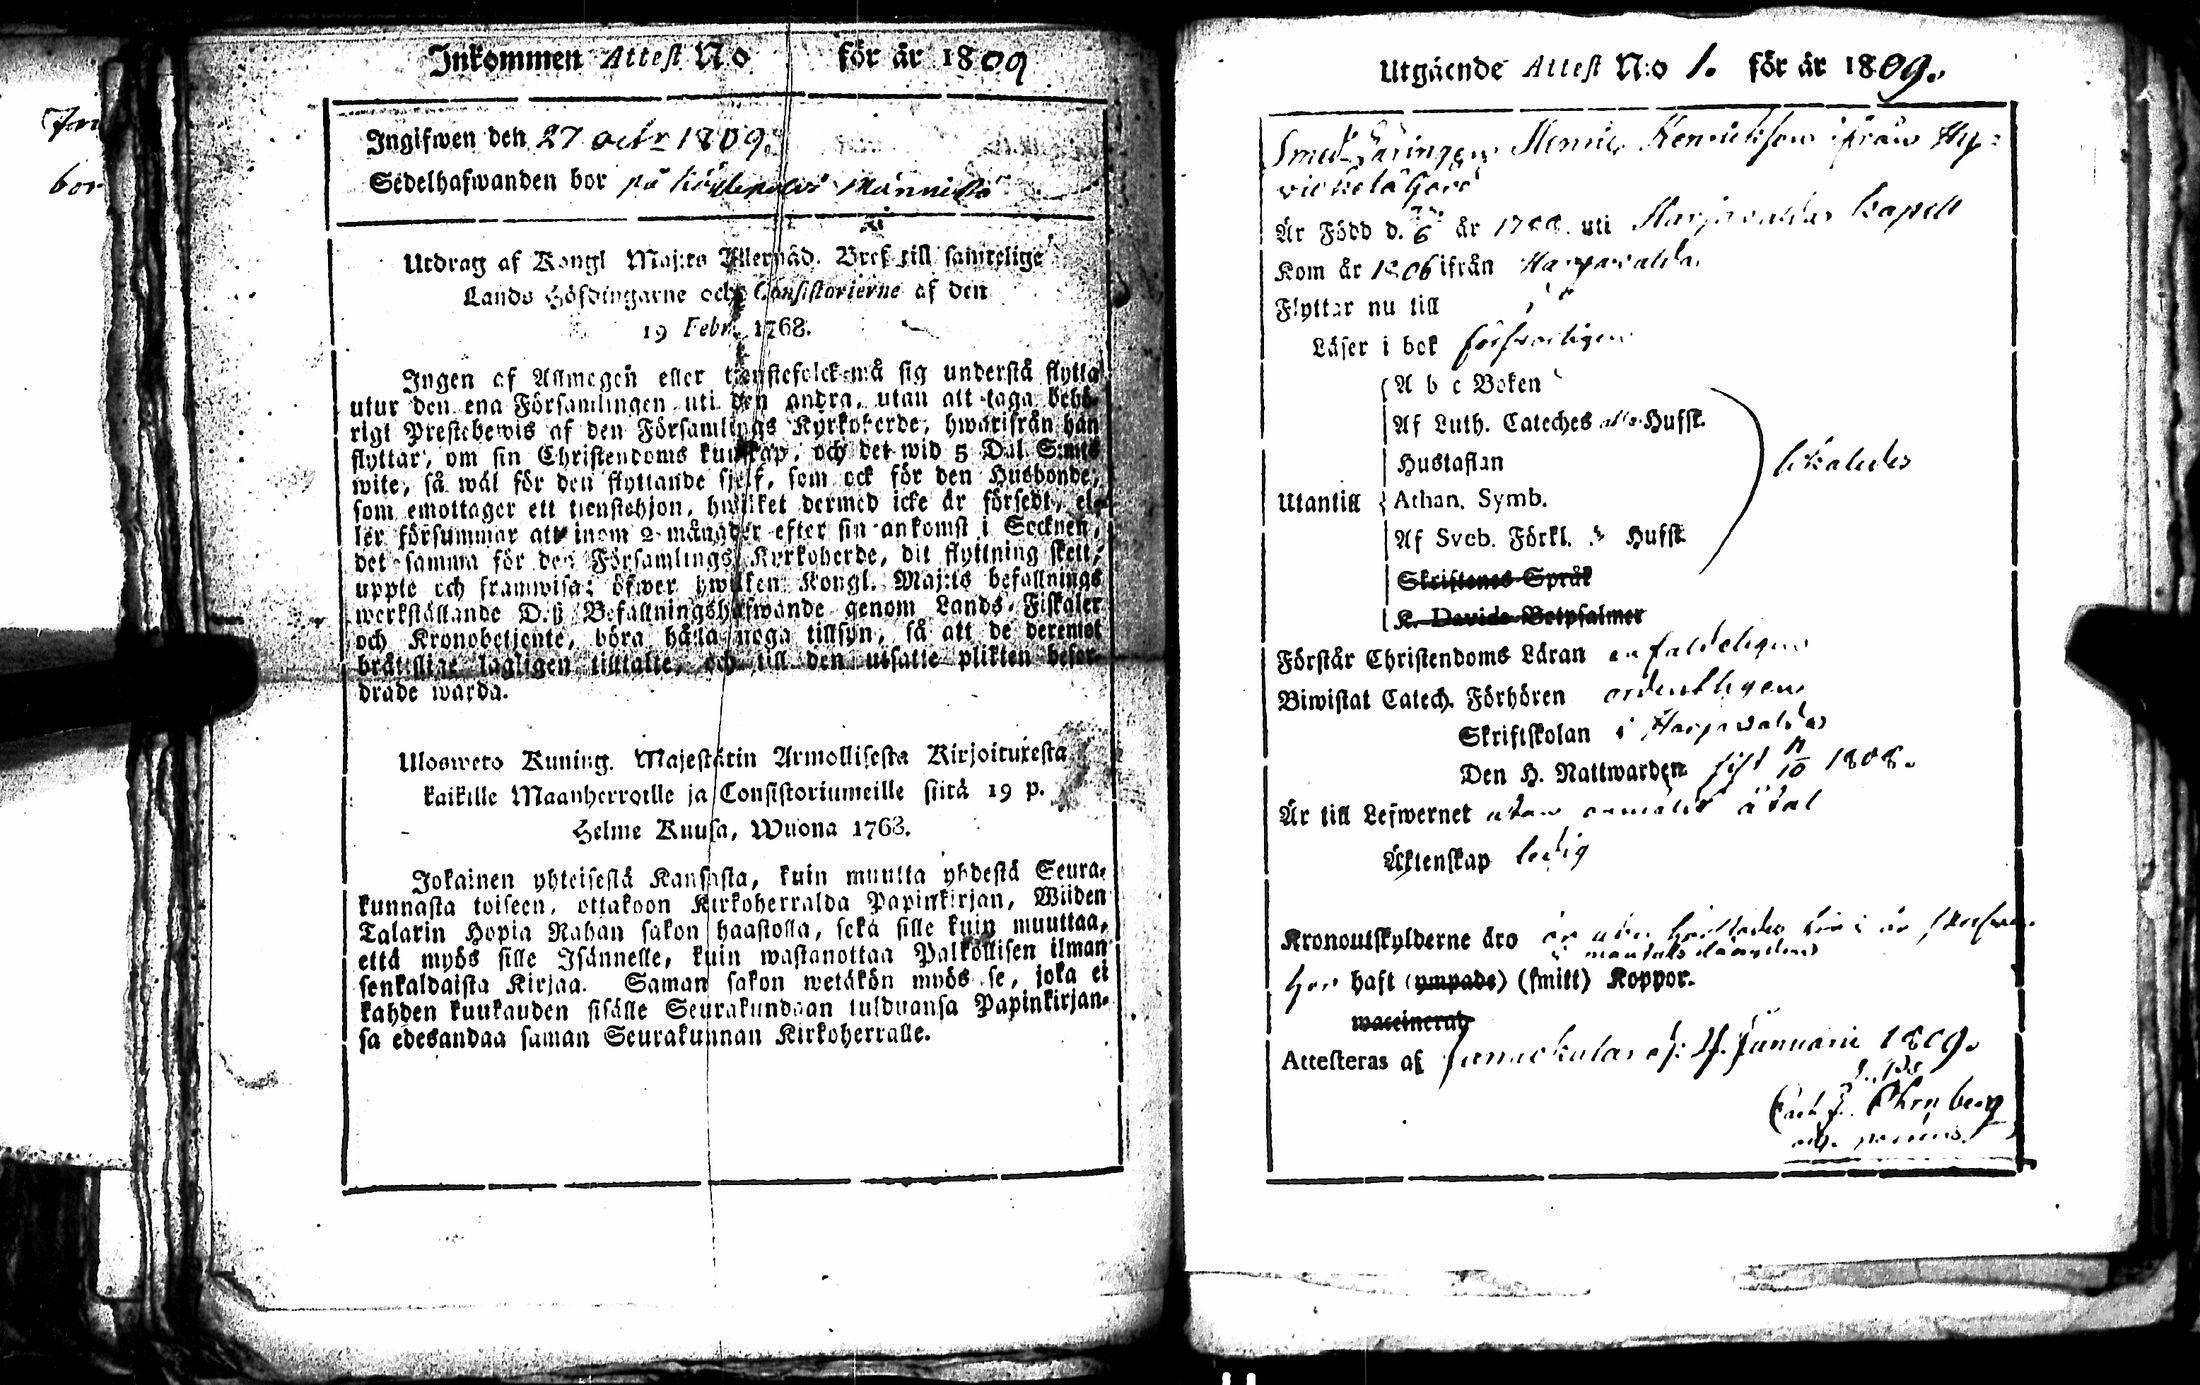 Inkommen Attest No för år 1809
Ingifwen den 27 octr 1809.
Sedelhafwanden bor på
Utdrag af Kongl Maj:ts Allernåd. Bref till samtelige
Lands Höfdingarne och Consistorierne af den
19 Febr. 1768.
Ingen af Allmogen eller tjenstefolck må sig understå flytta
utur den ena Församlingen uti den andra, utan att taga behö-
rigt Prestebewis af den Församlings Kyrkoherde, hwarifrån han
flyttar, om sin Christendoms kunskap, och det wid 5 Dal. S:mts
wite, så wäl för den flyttande sjelf, som ock för den Husbonde,
som emottager ett tienstehjon, hwilket dermed icke är försedt, el-
ler försummar att inom 2 månader efter sin ankomst i Socknen,
det samma för den Församlings Kyrkoherde, dit flyttning skett,
uppte och framwisa; öfwer hwilken Kongl. Maj:ts befallnings
werkställande Deß Befallningshafwande genom Lands-Fiskaler
och Kronobetjente, böra hålla noga tillsyn, så att de deremot
brätslige lagligen tilltalte, och till den utsatte plikten befor-
drade warda.
Ulosweto Kuning. Majestätin Armollisesta Kirjoituxesta
kaikille Maanherroille ja Consistoriumeille siitä 19 p.
Helme Kuusa, Wuona 1768.
Jokainen yhteisestä Kansasta, kuin muutta yhdestä Seura-
kunnasta toiseen, ottakoon Kirkoherralda Papinkirjan, Wiiden
Talarin Hopia Rahan sakon haastolla, sekä sille kuin muuttaa,
että myös sille Isännelle, kuin wastanottaa Palkollisen ilman
senkaldaista Kirjaa. Saman sakon wetäkön myös se, joka ei
kahden kuukauden sisälle Seurakundaan tulduansa Papinkirjan-
sa edesandaa saman Seurakunnan Kirkoherralle.
Utgående Attest N:o 1. för år 1809.
Henric Henricksson ifrån
Är Född d. 6 år uti Harjavalda Capell
Kom år 1806 ifrån Harjavalda
Flyttar nu till
Läser i bok försvarligen
A b c Boken
Af Luth. Cateches alla Hufst.
Hustaflan
likaledes
Utantill Athan. Symb.
Af Sveb. Förkl. Hufst
Skriftenes Språk
K. Davids Botpsalmer
Förstår Christendoms Läran enfaldeligen
Biwistat Catech. Förhören ordentligen
Skriftskolan i Harjavalda
Den H. Nattwarden sist 1808.
Är till Lefwernet utan anmält åtal
Äktenskap ledig
Kronoutskylderne äro
har haft (ympade) (smitt) Koppor.
waccinerad
Attesteras af Januarii 1809.